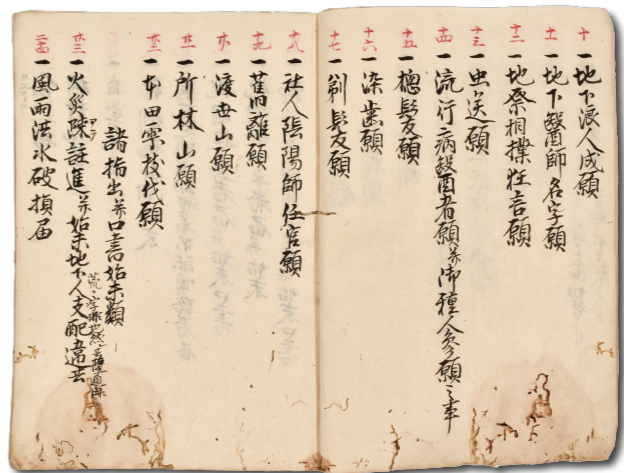 十 一地下浪人成願
十一 一地下醫師名字願
十二 一地祭相撲狂言願
十三 一虫送願
十四 一流行病醫者願并御種人参願之事
十五 一總髪願
十六 一染歯願
十七 一剃髪願
十八 一社人陰陽師任官願
十九 一舊離願
廿 一渡世山願
廿一 一所林山願
廿二 一本田寀杖代願
諸指出并口書始末類
廿三 一火災疎註進并始末地下人支配違共
廿四 一風雨洪水破損届